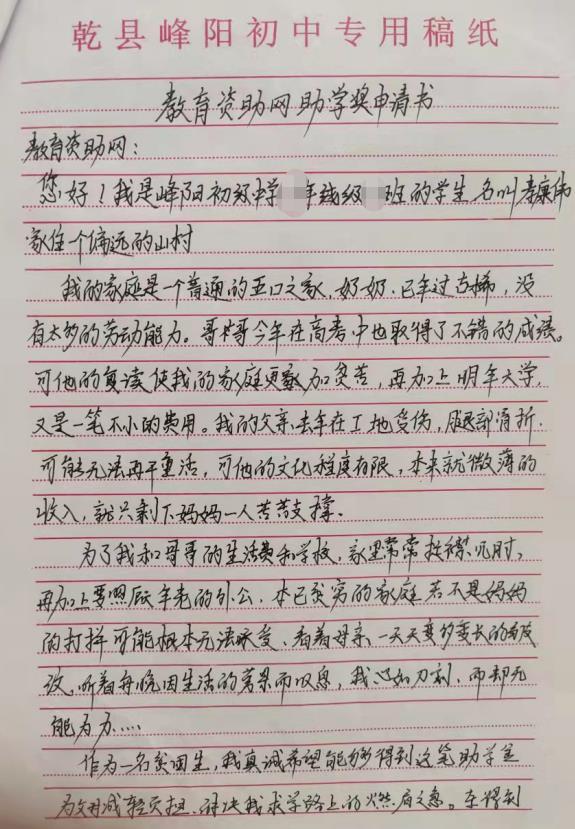 乾县峰阳初中专用稿纸
教育资助网助学奖申请书
教育资助网：
您好！我是峰阳初级中学 年级 班的学生 名叫李康伟
家住一个偏远的山村
我的家庭是一个普通的五口之家，奶奶已年过古稀，没
有太多的劳动能力。哥哥今年在高考中也取得了不错的成绩。
可他的复读使我的家庭更加贫苦，再加上明年大学，
又是一笔不小的费用。我的父亲去年在工地受伤，腿部骨折.
可能无法再干重活，可他的文化程度有限，本来就微薄的
收入，就只剩下妈妈一人苦苦支撑.
为了我和哥哥的生活费和学校，家里常常 ，
再加上要照顾年老的外公.本已贫穷的家庭若不是妈妈
的打拼可能根本无法承受.看着母亲一天天变多变长的
，听着母 因生活的 而叹息，我心如刀割，而却无
能为力....
作为一名贫困生，我真诚希望能够得到这笔助学金
为 减轻负担.解决我求学路上的燃眉之急。在得到